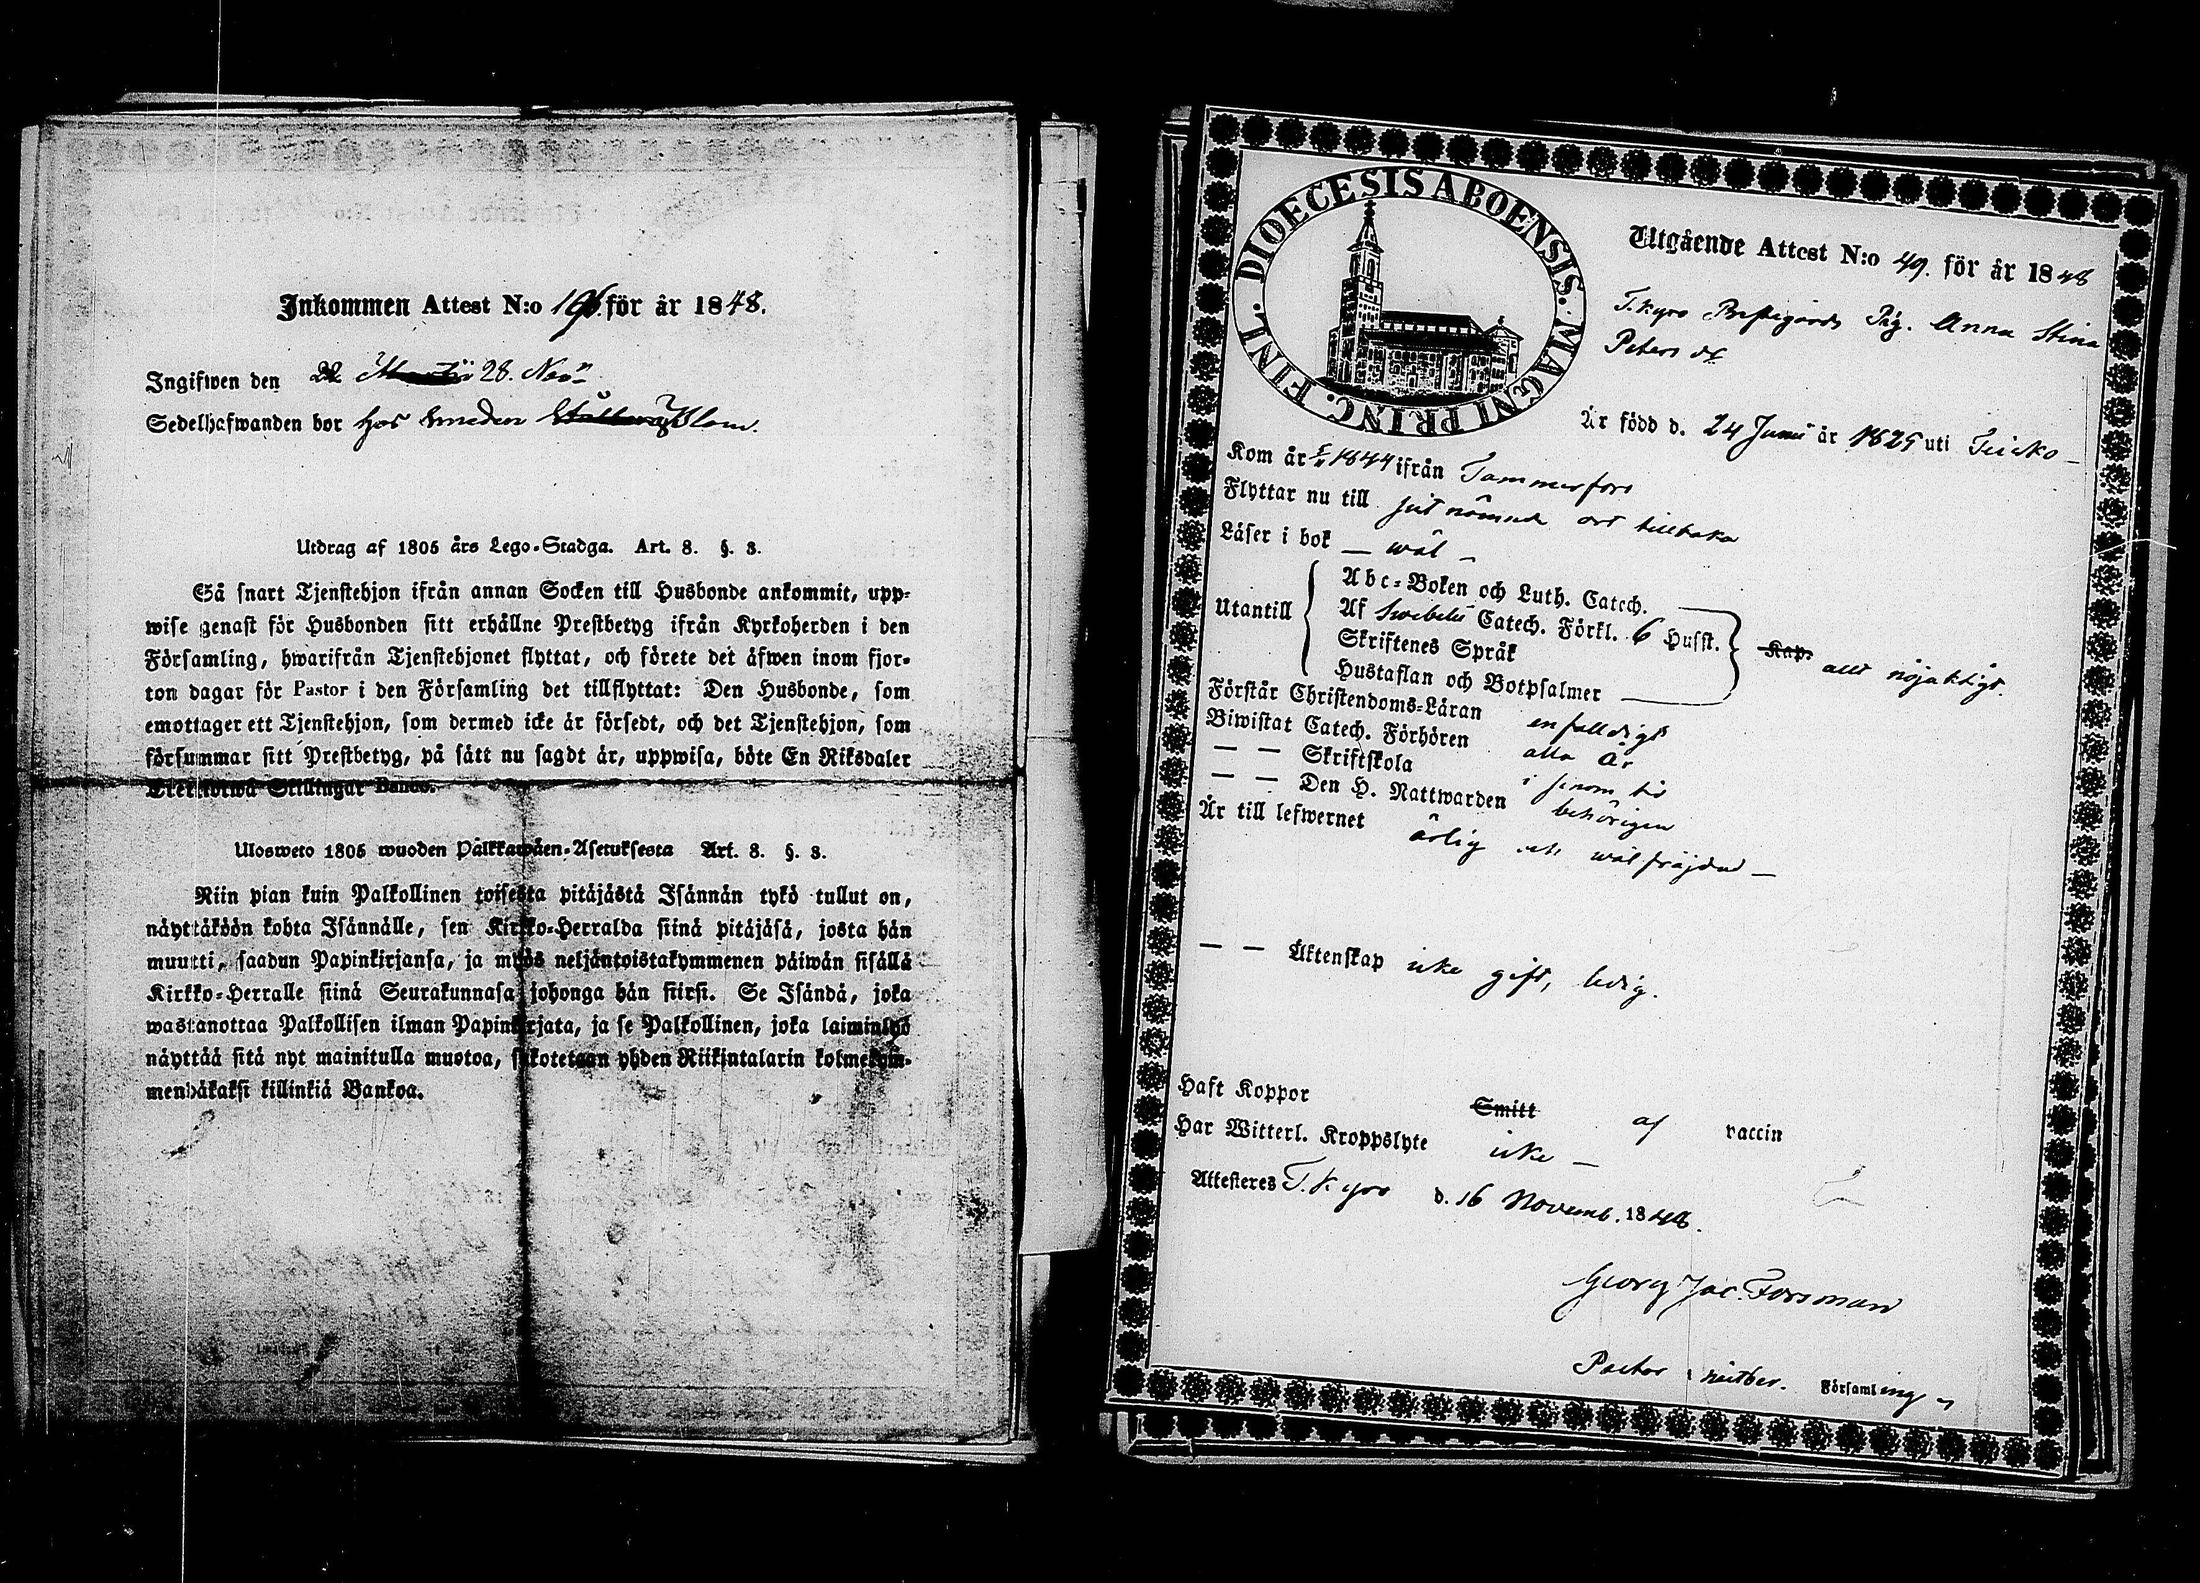 Inkommen Attest N:o 196. för år 1848.
Ingifwen den 22 28. Nov:
Sedelhafwanden bor hos Smeden Blom.
Utdrag af 1805 års Lego-Stadga. Art. 8. §. 3.
Så snart Tjenstehjon ifrån annan Socken till Husbonde ankommit, upp-
wise genast för Husbonden sitt erhållne Prestbetyg ifrån Kyrkoherden i den
Församling, hwarifrån Tjenstehjonet flyttat, och förete det äfwen inom fjor-
ton dagar för Pastor i den Församling det tillflyttat: Den Husbonde, som
emottager ett Tjenstehjon, som dermed icke är försedt, och det Tjenstehjon, som
försummar sitt Prestbetyg, på sätt nu sagdt är, uppwisa, böte En Riksdaler
Skillingar Banco.
Ulosweto 1805 wuoden Palkkawäen-Asetuksesta Art. 8. §. 3.
Niin pian kuin Palkollinen toisesta pitäjästä Isännän tykö tullut on,
näyttäköön kohta Isännälle, sen Kirkko-Herralda siinä pitäjäsä, josta hän
muutti, saadun Papinkirjansa, ja myös neljäntoistakymmenen päiwän sisällä
Kirkko-Herralle siinä Seurakunnasa johonga hän siirsi. Se Isändä, joka
wastanottaa Palkollisen ilman Papinkirjata, ja se Palkollinen, joka laiminlyö
näyttää sitä nyt mainitulla muotoa, sakotetaan yhden Riikintalarin kolmekym-
mendäkaksi killinkiä Bankoa.
DIOECESIS ABOENSIS. MAGNI PRINC. FINL.
Utgående Attest N:o 49. för år 1848
T.kyro Prestgårds Pig. Anna Stina
Peters dr
Är född d. 24 Junii år 1825 uti Teisko –
Kom år 1844 ifrån Tammerfors
Flyttar nu till sistnämnde ort tillbaka
Läser i bok – wäl –
Utantill
Abc-Boken och Luth. Catech.
Af Swebelii Catech. Förkl. 6 Husst. Kap. allt nöjaktigt.
Skriftenes Språk
Hustaflan och Botpsalmer
Förstår Christendoms-Läran enfaldigt
Biwistat Catech. Förhören alla år
— — Skriftskola i sinom tid
— — Den H. Nattwarden behörigen
Är till lefwernet ärlig och wälfräjdad –
— — Äktenskap icke gift, ledig.
Haft Koppor Smitt af vaccin
Har Witterl. Kroppslyte icke –
Attesteres T.kyro d. 16 Novemb. 1848.
Georg Jac. Forsman
Pastor i nästber. Församlingen